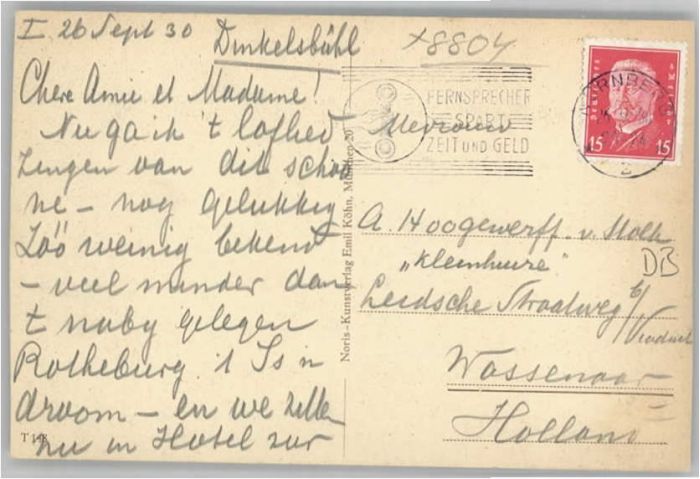 I 26 Sept 30 Dinkelsbühl
x8804
Chere Amie et Madame!
Nu ga ik 't lof lied
zingen van dit schoo
ne - nog gelukkig
zóó weinig bekend
- veel minder dan
't naby gelegen
Rothenburg. 't Is 'n
droom - en we zitten
nu in Hotel zur
T 148
Noris-Kunstverlag Emil Köhn, München 20
FERNSPRECHER
SPART
ZEIT UND GELD
NÜRNBERG
2
Deutsches Reich
15 15
Mevrouw
A. Hoogewerff - v. Stolk
"Kleinhuize"
DB
Leidsche Straatweg b/
Viaduct
Wassenaar
Holland